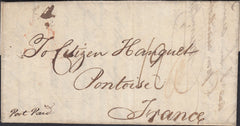 To Citizen Hanquet
Pontoise
France
Post Paid